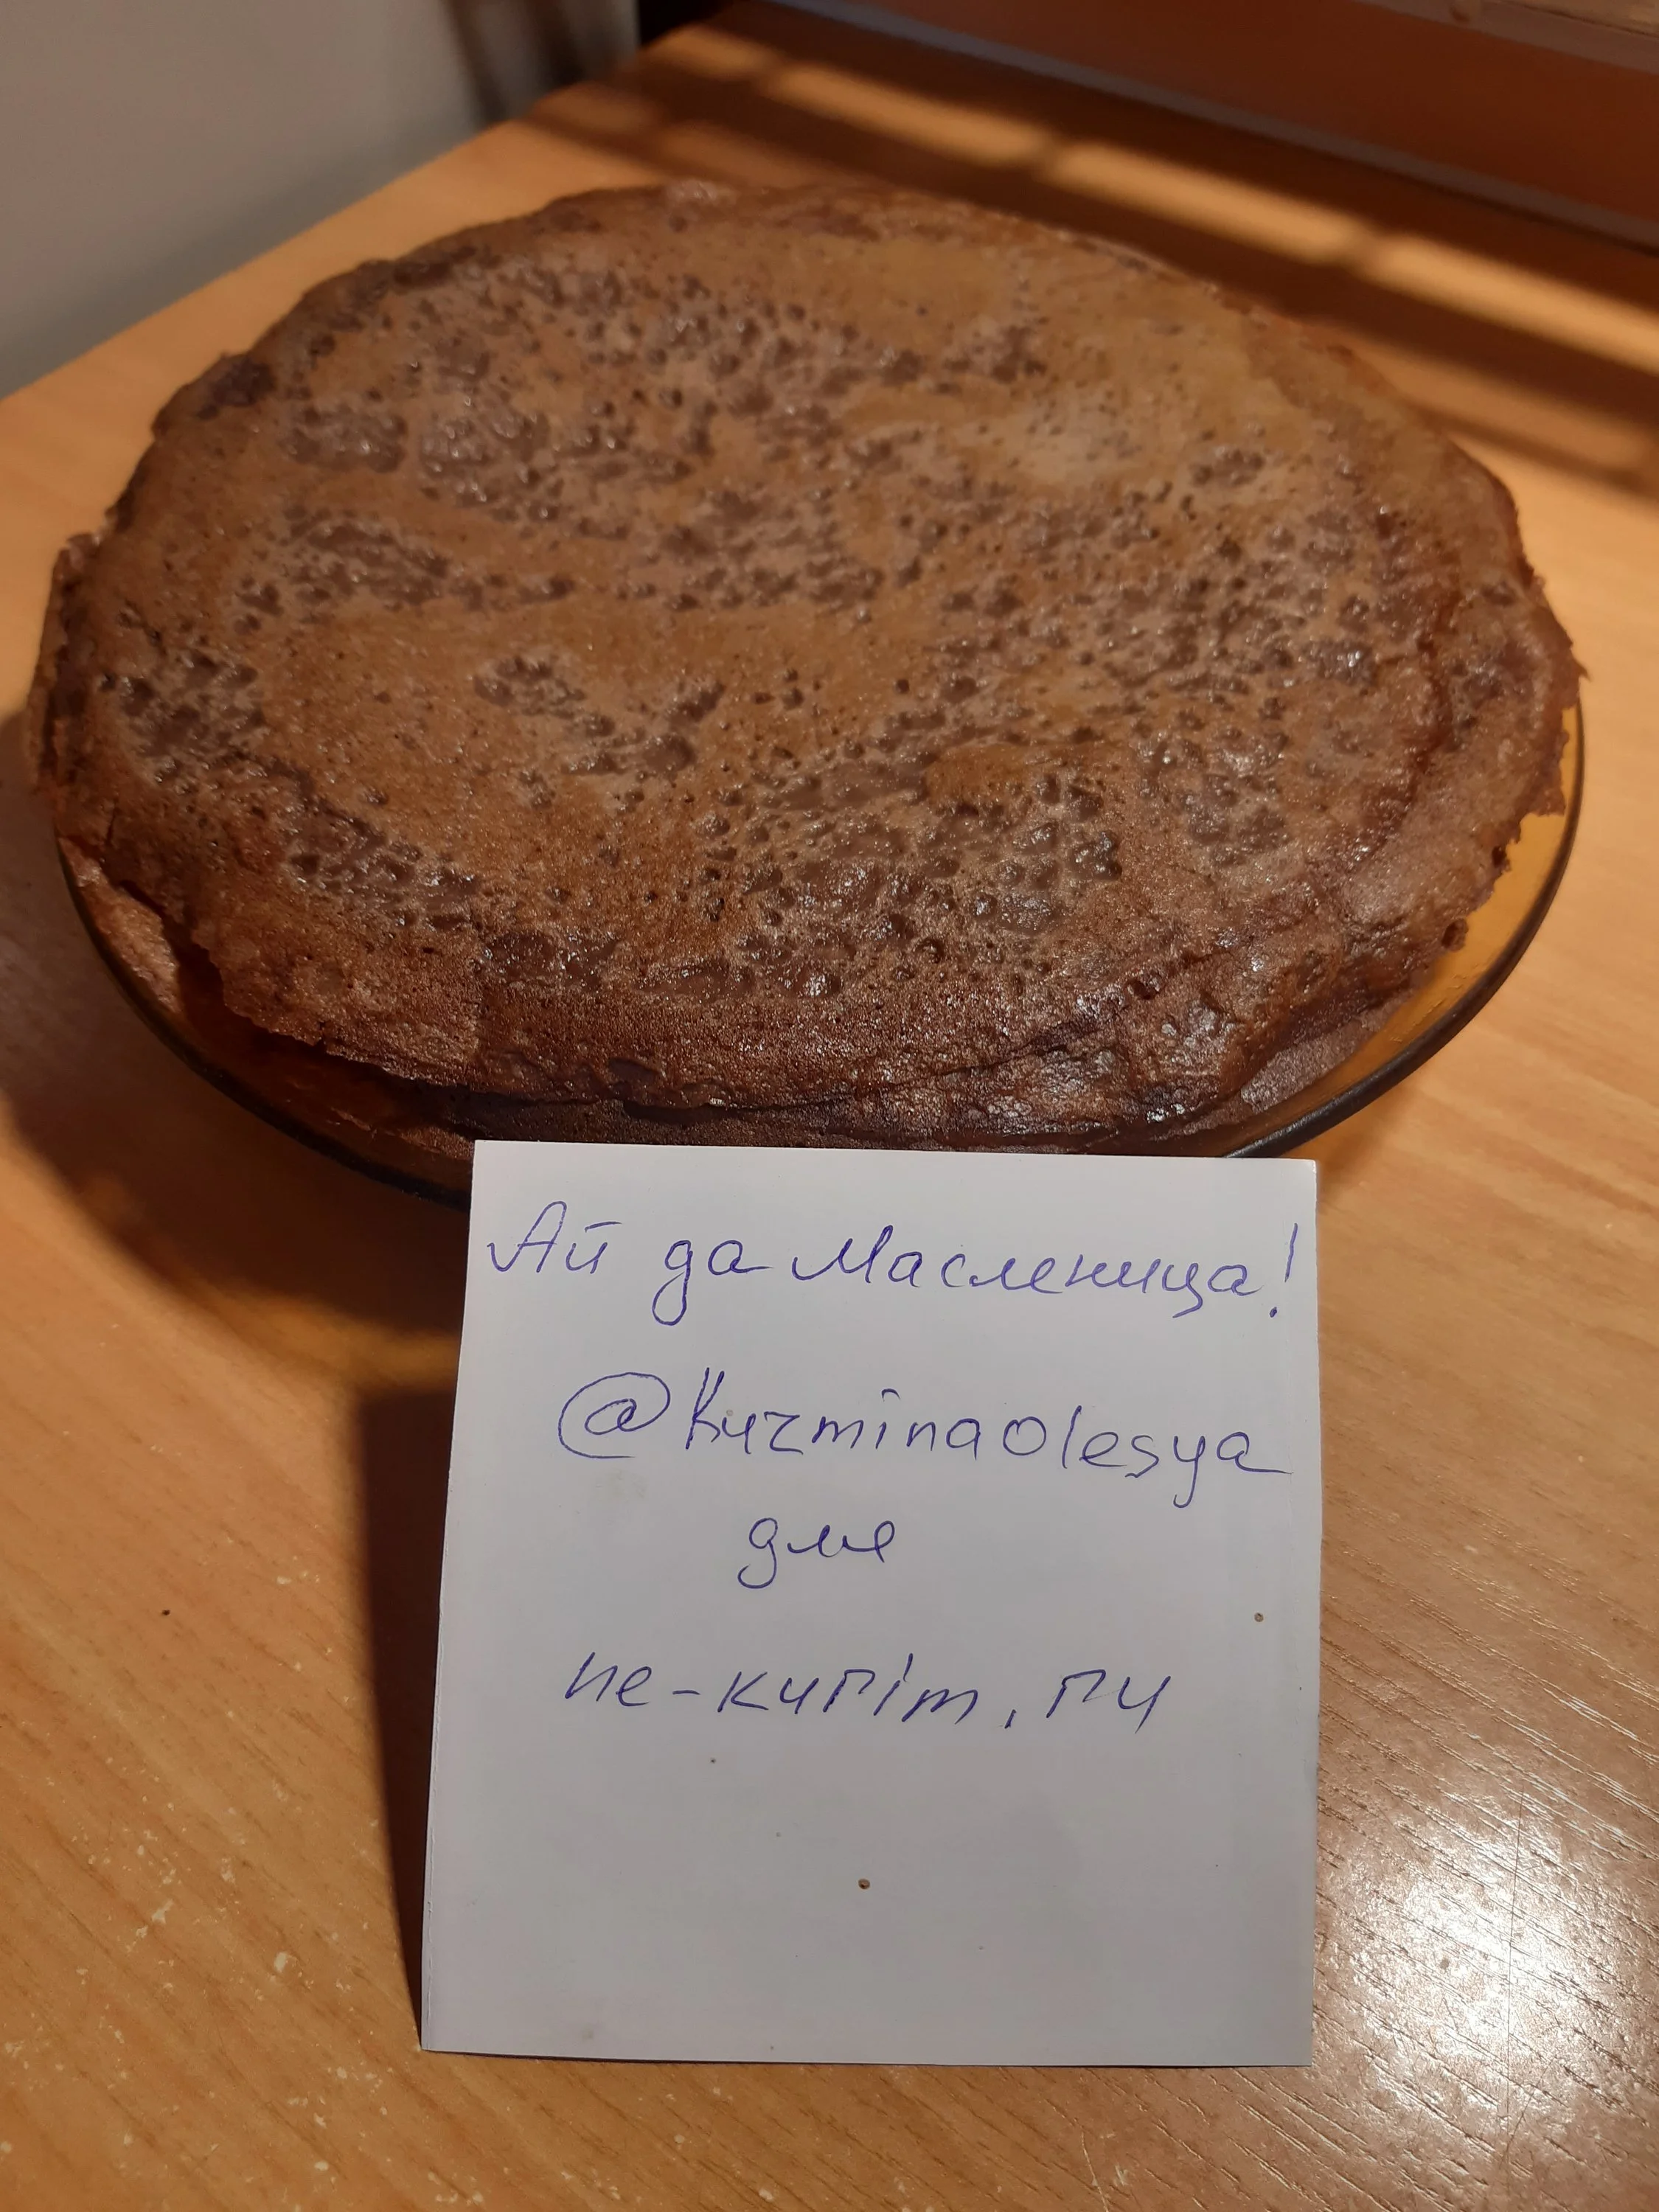 Ай да Масленица!
@Kuzminaolesya
для
ne-kurim.ru